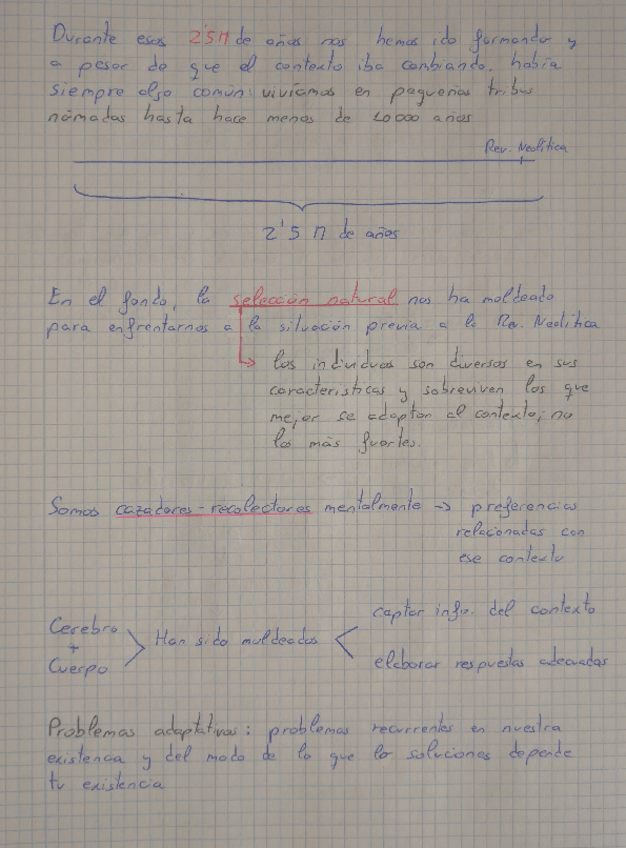 Durante esos 2'5 M de años nos hemos ido formando y
a pesar de que el contexto iba cambiando, había
siempre algo común: vivíamos en pequeñas tribus
nómadas hasta hace menos de 10000 años
Rev. Neolítica
2'5 M de años
En el fondo, la selección natural nos ha moldeado
para enfrentarnos a la situación previa a la Rev. Neolítica
los individuos son diversos en sus
características y sobreviven los que
mejor se adaptan al contexto, no
los más fuertes.
Somos cazadores-recolectores mentalmente → preferencias
relacionadas con
ese contexto
Cerebro
+
Cuerpo
Han sido moldeados
captar info. del contexto
elaborar respuestas adecuadas
Problemas adaptativos: problemas recurrentes en nuestra
existencia y del modo de lo que lo soluciones depende
tu existencia